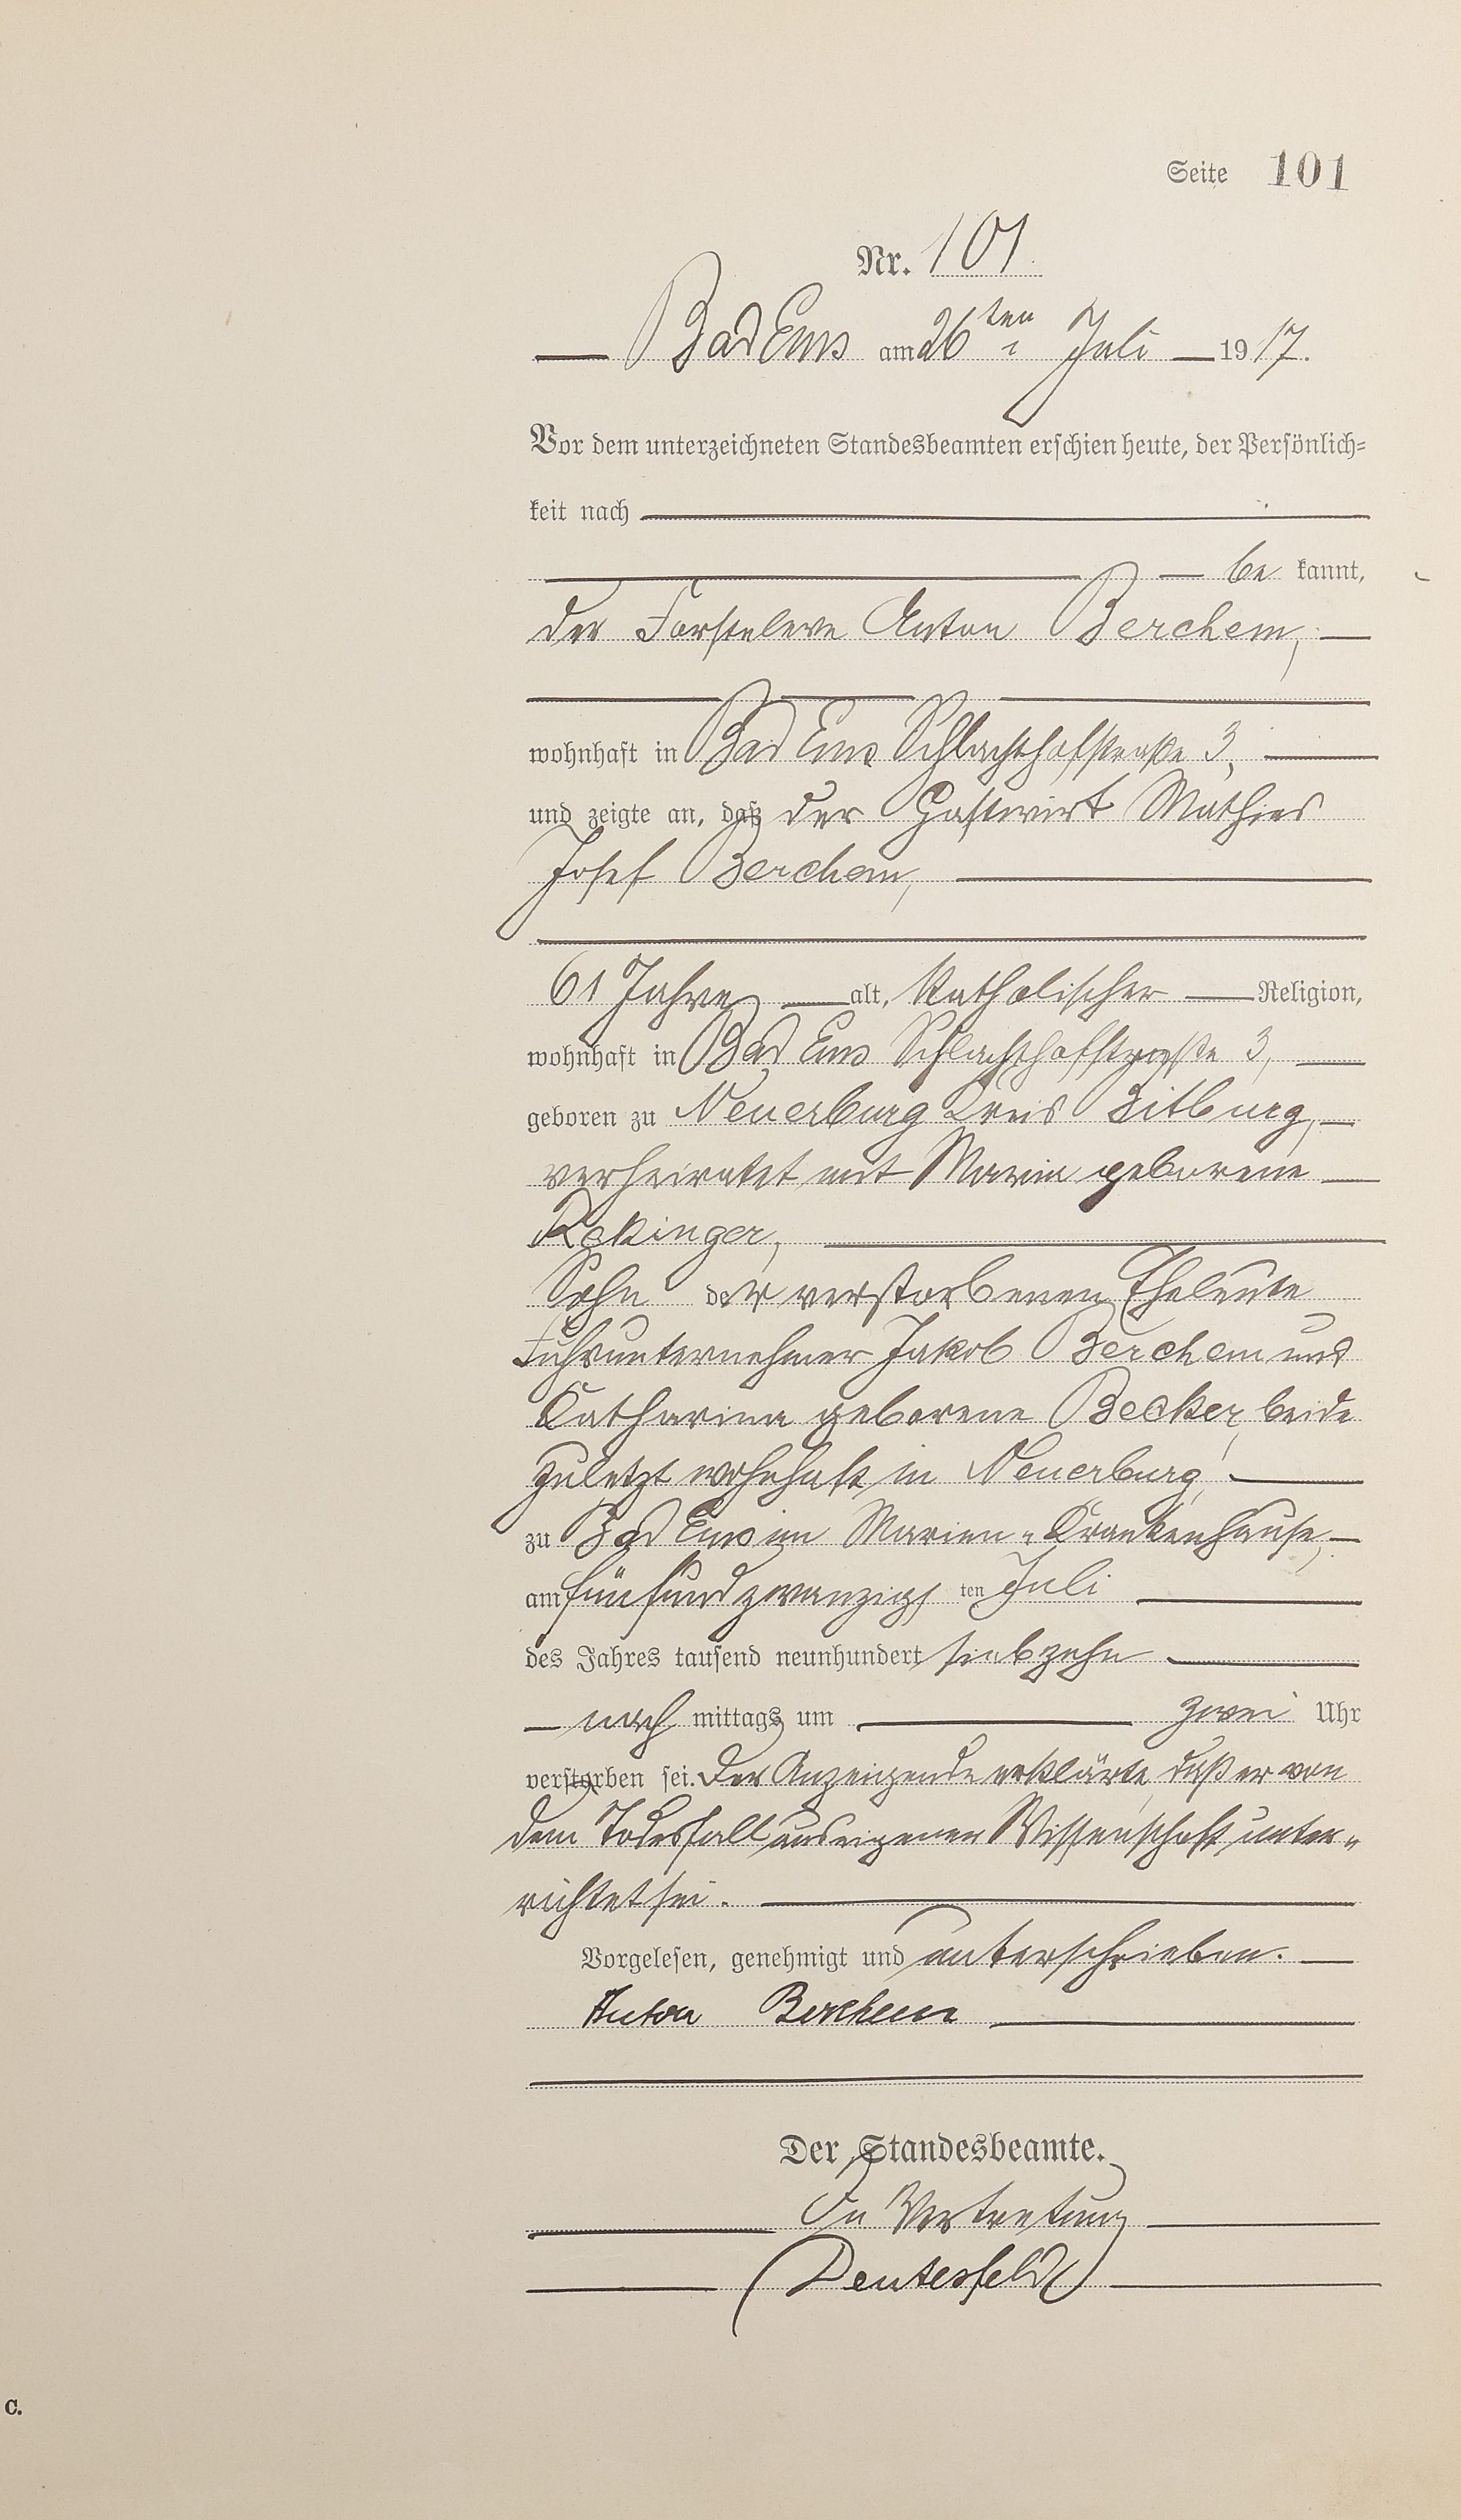 Seite 101
Nr. 101.
Bad Ems am 26ten Juli 1917.
Vor dem unterzeichneten Standesbeamten erschien heute, der Persönlich=
keit nach
be kannt,
der Forsteleve Anton Berchem,
wohnhaft in Bad Ems Schlachthofstraße 3,
und zeigte an, daß der Gastwirt Mathias
Josef Berchem,
61 Jahre alt, katholischer Religion,
wohnhaft in Bad Ems Schlachthofstraße 3,
geboren zu Neuerburg Kreis Bitburg,
verheiratet mit Maria geborene
Rekinger,
Sohn der verstorbenen Eheleute
Fuhrunternehmer Jakob Berchem und
Katharina geborene Becker, beide
zuletzt wohnhaft in Neuerburg,
zu Bad Ems im Marien-Krankenhause,
am fünfundzwanzigsten Juli
des Jahres tausend neunhundert siebzehn
nach mittags um zwei Uhr
verstorben sei. Der Anzeigende erklärte, daß er von
dem Todesfall aus eigener Wissenschaft unter-
richtet sei.
Vorgelesen, genehmigt und unterschrieben.
Anton Berchem
Der Standesbeamte.
In Vertretung
Deutesfeld
C.